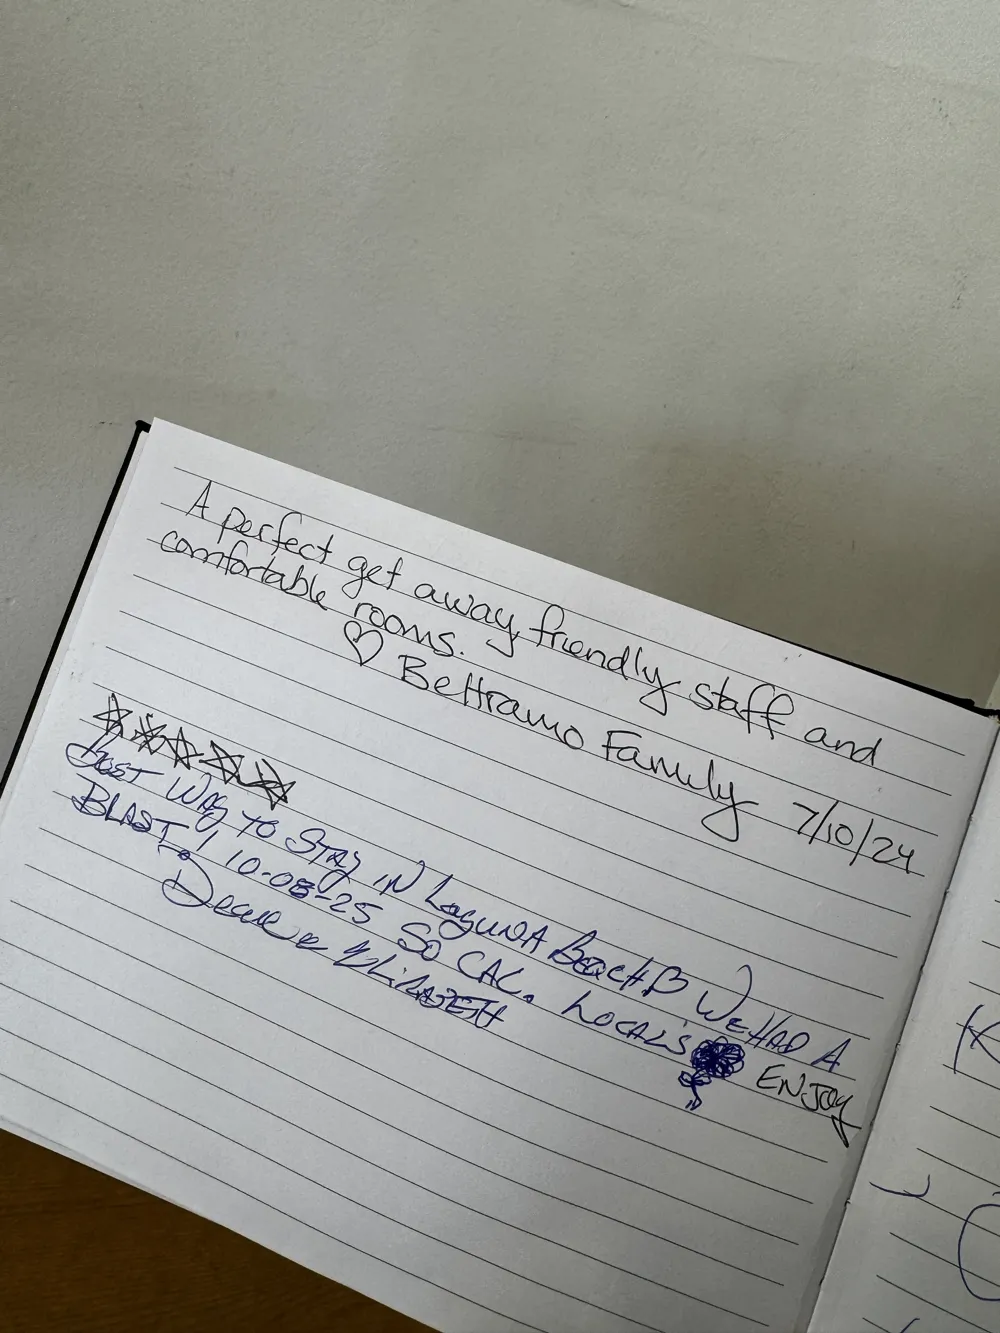 A perfect get away, friendly staff and
comfortable rooms.
♡ Beltramo Family 7/10/24
BEST WAY TO STAY IN LAGUNA BEACH WE HAD A
BLAST! 10-08-25 SO CAL. LOCALS ENJOY
ELIZABETH